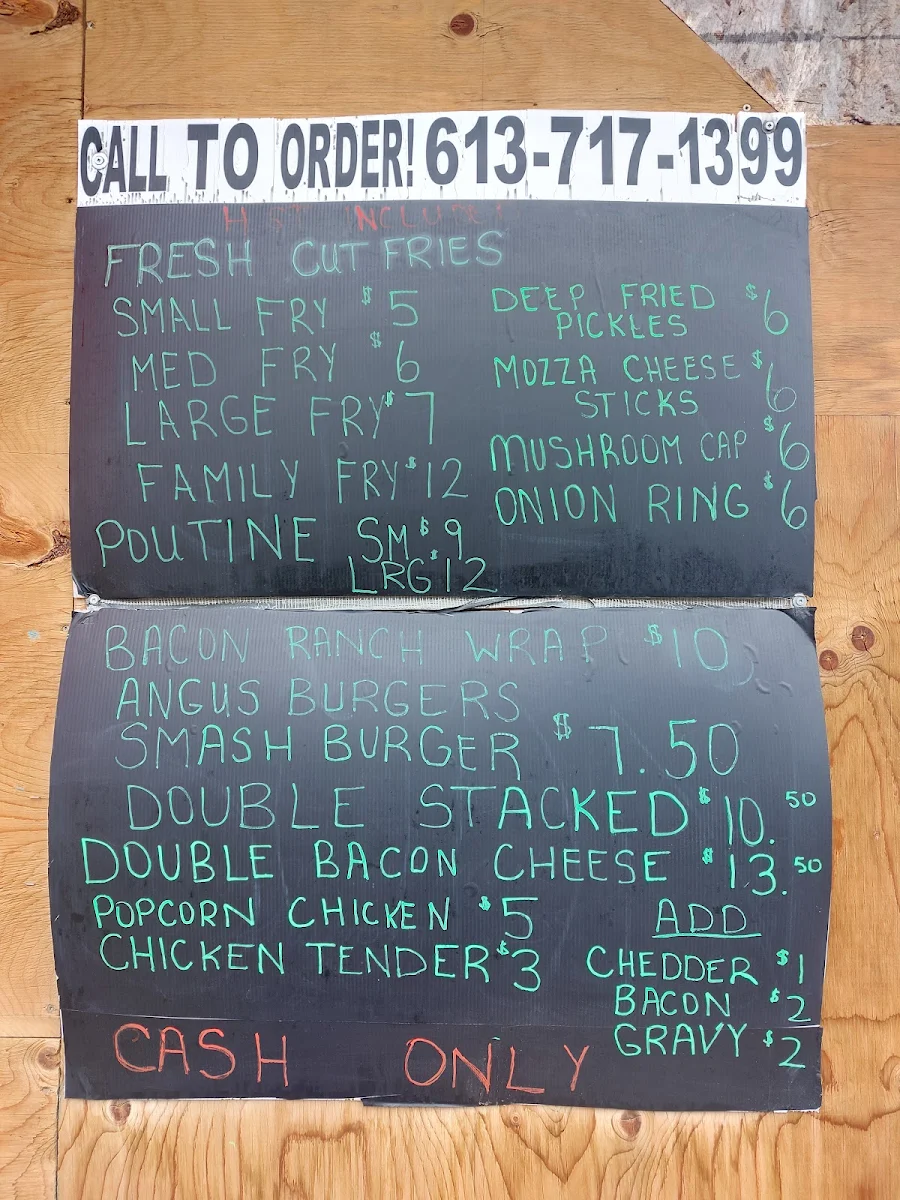 CALL TO ORDER! 613-717-1399
HST INCLUDED
FRESH CUT FRIES
SMALL FRY $5
MED FRY $6
LARGE FRY $7
FAMILY FRY $12
POUTINE SM $9
LRG $12
DEEP FRIED $6
PICKLES
MOZZA CHEESE $6
STICKS
MUSHROOM CAP $6
ONION RING $6
BACON RANCH WRAP $10
ANGUS BURGERS
SMASH BURGER $7.50
DOUBLE STACKED $10.50
DOUBLE BACON CHEESE $13.50
POPCORN CHICKEN $5
CHICKEN TENDER $3
ADD
CHEDDER $1
BACON $2
GRAVY $2
CASH ONLY